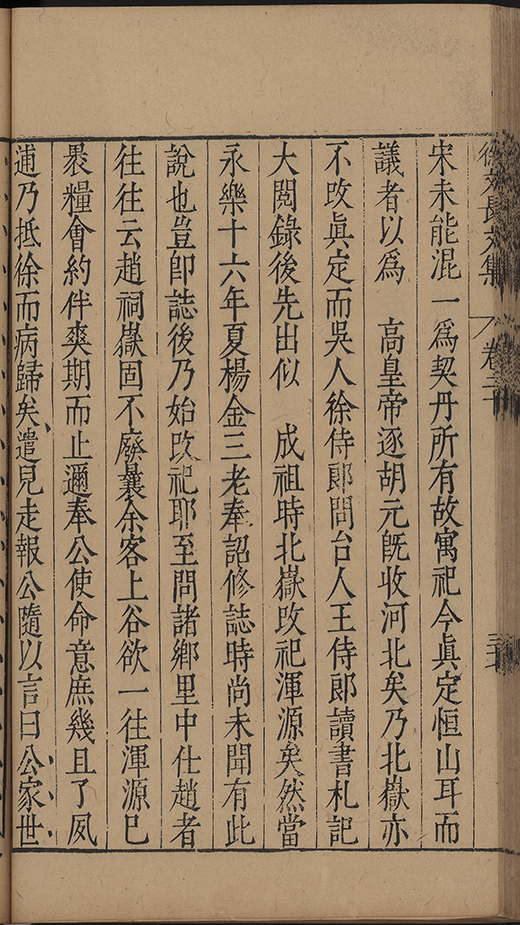 徐文長文集 卷二十
宋未能混一爲契丹所有故寓祀今眞定恒山耳而
議者以爲 高皇帝逐胡元旣收河北矣乃北嶽亦
不攺眞定而吳人徐侍郎問台人王侍郎讀書札記
大閱錄後先出似 成祖時北嶽攺祀渾源矣然當
永樂十六年夏楊金三老奉詔修誌時尚未聞有此
說也豈卽誌後乃始攺祀耶至問諸鄉里中仕趙者
往往云趙祠嶽固不廢曩余客上谷欲一往渾源巳
褁糧會約伴爽期而止邇奉公使命意庶幾且了夙
逋乃抵徐而病歸矣遣見走報公隨以言曰公家世